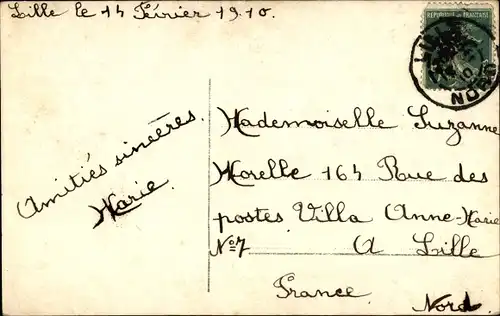 Lille le 14 Février 1910.
REPUBLIQUE FRANÇAISE
LILLE
NORD
Amitiés sincères.
Marie.
Mademoiselle Suzanne
Morelle 164 Rue des
postes Villa Anne-Marie
No 7 A Lille
France Nord.